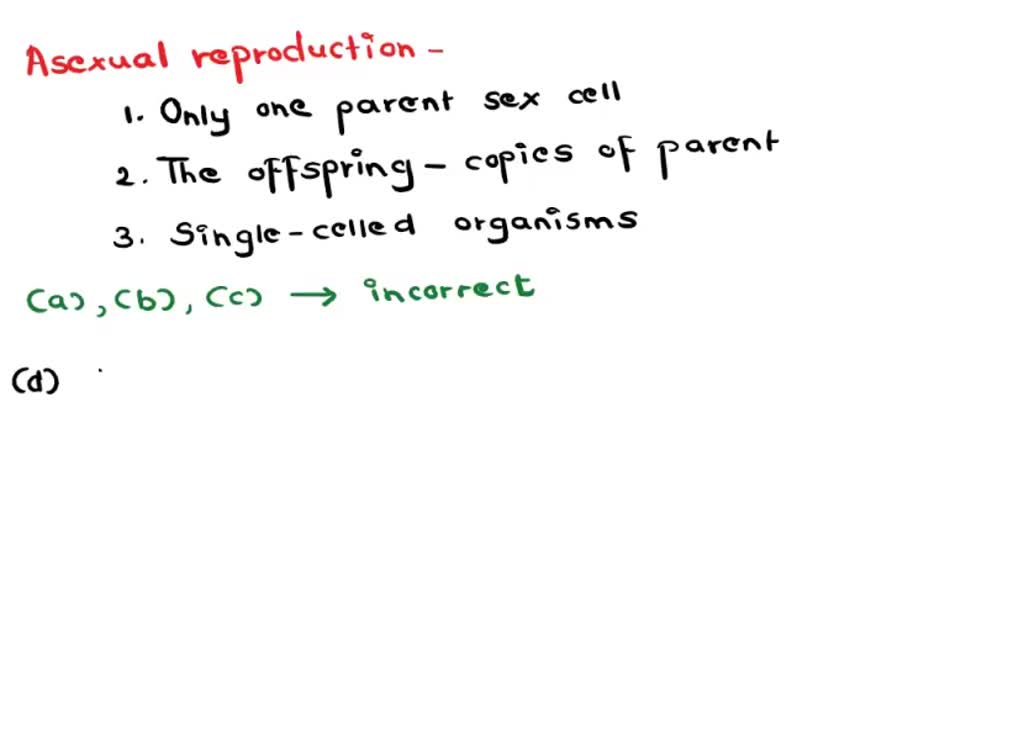 Asexual reproduction -
1. Only one parent sex cell
2. The offspring - copies of parent
3. Single-celled organisms
(a), (b), (c) → incorrect
(d)